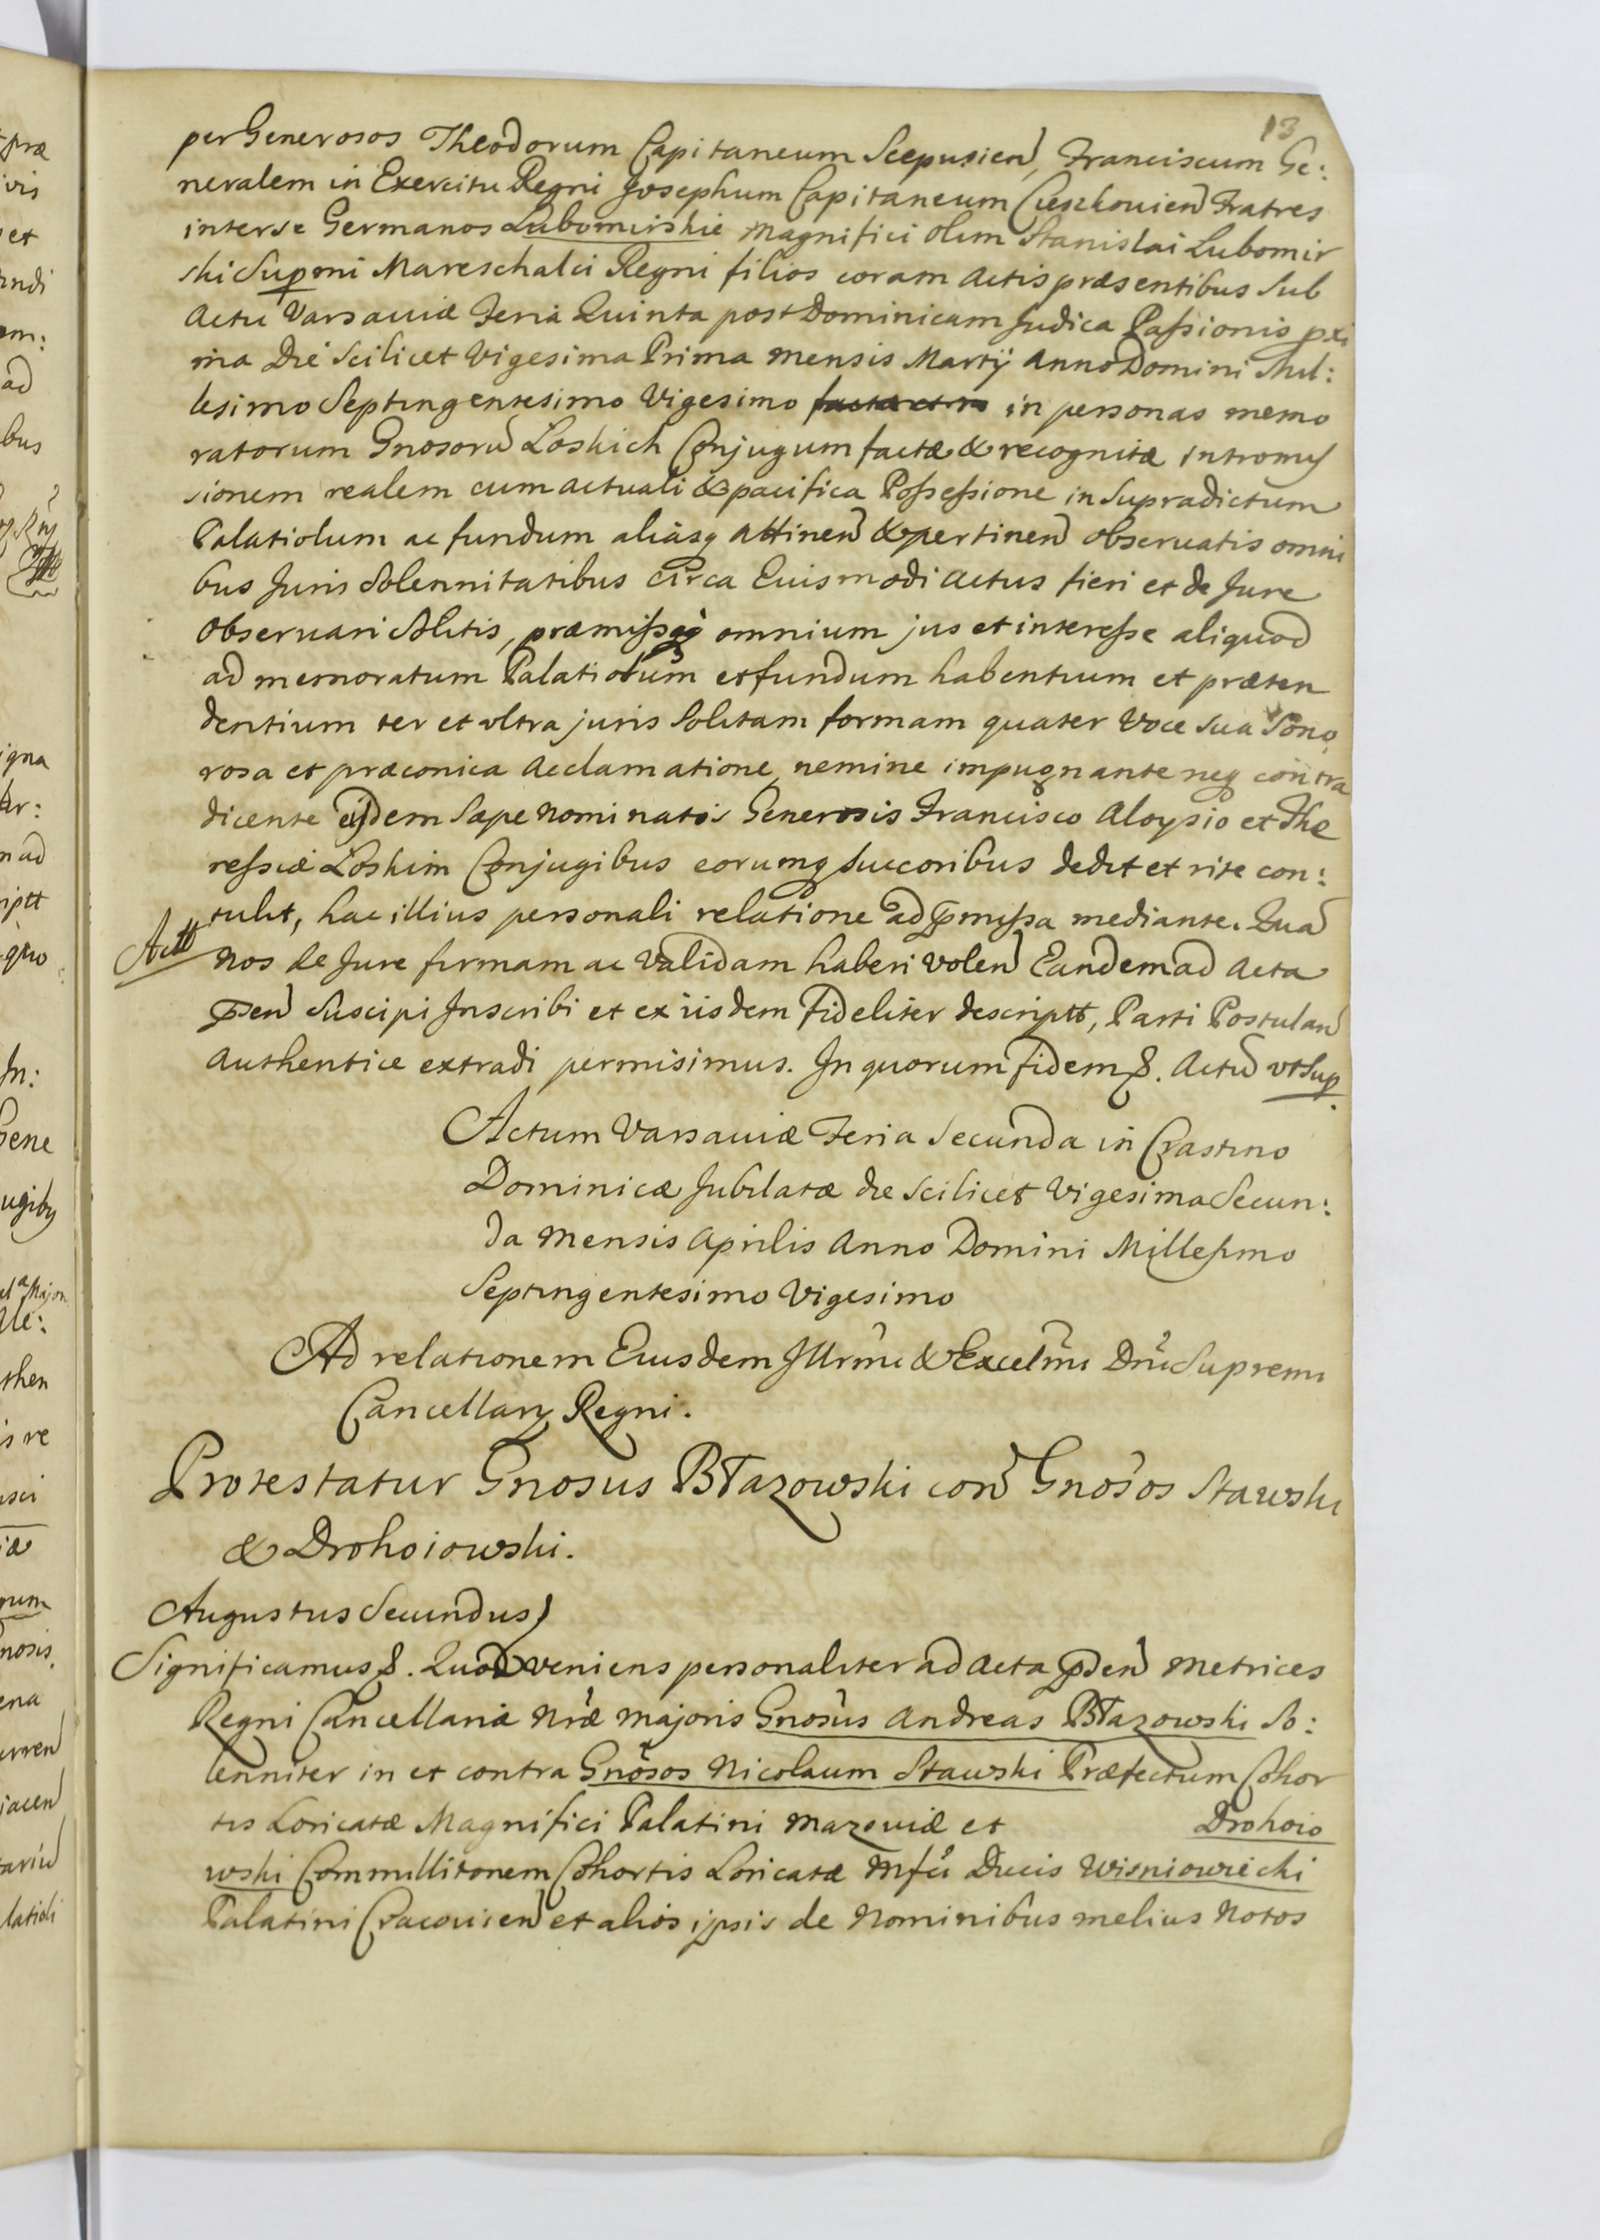 13
per Generosos Theodorum Capitaneum Scepusien, Franciscum Ge:
neralem in Exercitu Regni Josephum Capitaneum Fratres
inter se Germanos Lubomirskie Magnifici olim Stanislai Lubomir
ski Supmi Mareschalci Regni filios coram Actis præsentibus sub
Actu Varsaviæ Feria Quinta post Dominicam Judica Passionis pxi
ma Die scilicet Vigesima Prima mensis Martij Anno Domini Mil:
lesimo Septingentesimo Vigesimo in personas memo
ratorum Gnosorū Loskich Conjugum factæ & recognitæ intromis
sionem realem cum actuali & pacifica Possessione in supradictum
Palatiolum ac fundum aliasq attinen & pertinen observatis omni
bus Juris Solennitatibus circa Euismodi actus fieri et de Jure
observari solitis, præmissoq omnium jus et interesse aliquod
ad memoratum Palatiolum et fundum habentium et præten
dentium ter et ultra juris solitam formam quater Voce sua Sono
rosa et præconica acclamatione nemine impugnante neq contra
dicente eisdem sæpe nominatis Generosis Francisco Aloysio et The
ressiæ Loskim Conjugibus eorumq succoribus dedit et rite con:
tulit, hac illius personali relatione ad pmissa mediante. Quā
Actt
nos de Jure firmam ac validam haberi volen Eandem ad Acta
psen suscipi Inscribi et ex iisdem fideliter descriptt, Parti Postulan
Authentice extradi permisimus. In quorum fidem &. Actū ut sup.
Actum Varsaviæ Feria Secunda in Crastino
Dominicæ Jubilatæ die scilicet Vigesima Secun:
da mensis Aprilis Anno Domini Millesimo
Septingentesimo Vigesimo
Ad relationem Eiusdem Illrmi & Excelmi Dni Supremi
Cancellarij Regni.
Protestatur Gnosus Błazowski con Gnosos Stawski
& Drohoiowski.
Augustus Secundus
Significamus &. Quod veniens personaliter ad acta psen Metrices
Regni Cancellariæ Nræ Majoris Gnosus Andreas Błazowski So:
lenniter in et contra Gnosos Nicolaum Stawski Præfectum Cohor
tis Loricatæ Magnifici Palatini Mazoviæ et Drohoio
wski Commilitonem Cohortis Loricatæ Mfci Ducis Wisniowiecki
Palatini Cracovien et alios ipsis de Nominibus melius Notos